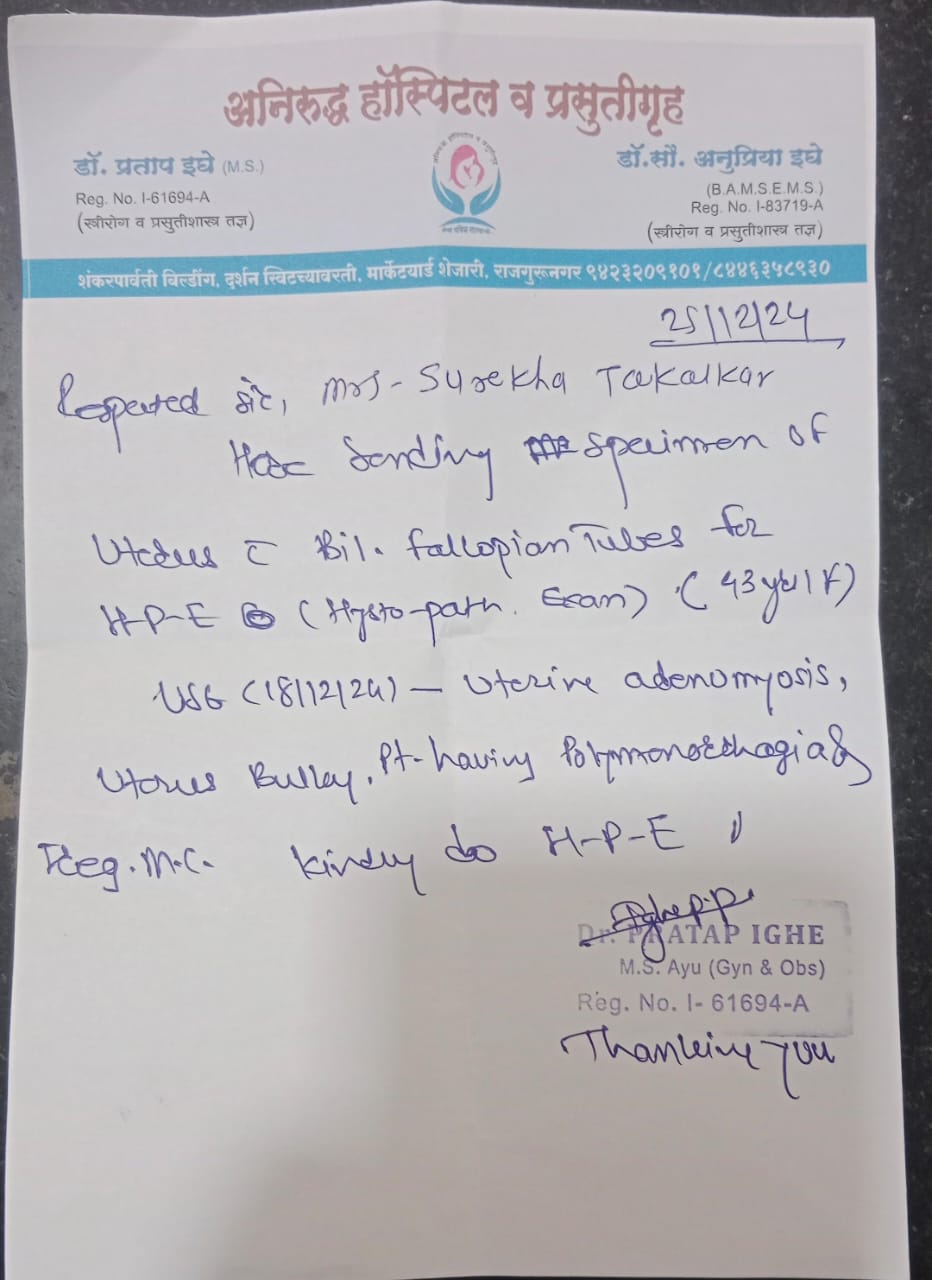 अनिरुद्ध हॉस्पिटल व प्रसुतीगृह
डॉ. प्रताप इघे (M.S.)
Reg. No. I-61694-A
(स्त्रीरोग व प्रसुतीशास्त्र तज्ञ)
डॉ.सौ. अनुप्रिया इघे
(B.A.M.S.E.M.S.)
Reg. No. I-83719-A
(स्त्रीरोग व प्रसुतीशास्त्र तज्ञ)
शंकरपार्वती बिल्डींग, दर्शन स्विटच्यावरती, मार्केटयार्ड शेजारी, राजगुरूनगर ९४२३२०९१०१/८४४६३५८९३०
25/12/24
Respected Mrs - Surekha Takalkar
Sending Specimen OF
Uterus c̄ Bil. fallopian Tubes for
H-P-E (Hysto-path. Exam) (43 yrs/F)
USG (18/12/24) - Uterine adenomyosis,
Uterus Bulky, Pt- having &
M.C. kindly do H-P-E
Dr. PRATAP IGHE
M.S. Ayu (Gyn & Obs)
Reg. No. I- 61694-A
Thanking you